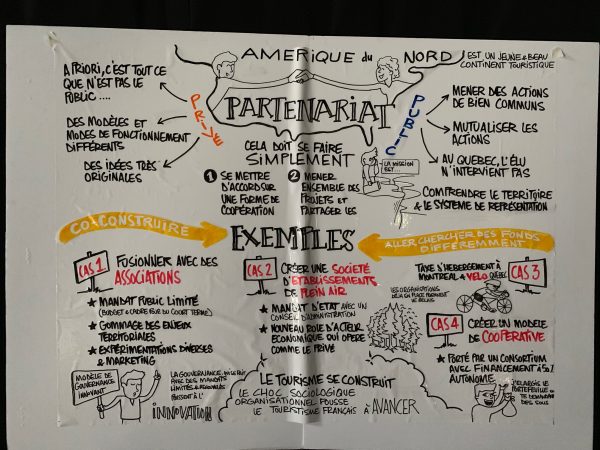 AMERIQUE du NORD
EST UN JEUNE & BEAU
CONTINENT TOURISTIQUE
PARTENARIAT
PRIVÉ
A PRIORI, C'EST TOUT CE
QUE N'EST PAS LE
PUBLIC ....
DES MODÈLES ET
MODES DE FONCTIONNEMENT
DIFFÉRENTS
DES IDÉES TRÈS
ORIGINALES
PUBLIC
MENER DES ACTIONS
DE BIEN COMMUNS
MUTUALISER LES
ACTIONS
AU QUEBEC, L'ÉLU
N'INTERVIENT PAS
COMPRENDRE LE TERRITOIRE
& LE SYSTEME DE REPRÉSENTATION
CELA DOIT SE FAIRE
SIMPLEMENT
1 SE METTRE
D'ACCORD SUR
UNE FORME DE
COOPÉRATION
2 MENER
ENSEMBLE DES
PROJETS ET
PARTAGER LES
LA MISSION
EST...
CO-CONSTRUIRE
EXEMPLES
ALLER CHERCHER DES FONDS
DIFFÉREMMENT
CAS 1
FUSIONNER AVEC DES
ASSOCIATIONS
★ MANDAT PUBLIC LIMITÉ
★ GOMMAGE DES ENJEUX
TERRITORIALES
★ EXPÉRIMENTATIONS DIVERSES
& MARKETING
MODÈLE DE
GOUVERNANCE
INNOVANT
LA GOUVERNANCE
AVEC DES MANDATS
LIMITÉS
INNOVATION
CAS 2
CRÉER UNE SOCIÉTÉ
D'ETABLISSEMENTS
DE PLEIN AIR
★ MANDAT D'ETAT AVEC UN
CONSEIL D'ADMINISTRATION
★ NOUVEAU ROLE D'ACTEUR
ECONOMIQUE QUI OPERE
COMME LE PRIVÉ
CAS 3
TAXE D'HEBERGEMENT À
MONTREAL & VELO QUÉBEC
LES ORGANISATIONS
DÉJÀ EN PLACE PRENNENT
LE RELAIS
CAS 4
CRÉER UN MODELE
DE COOPÉRATIVE
★ PORTÉ PAR UN CONSORTIUM
AVEC FINANCEMENT À
AUTONOME
J'ELARGIS LE
PORTEFEUILLE
TE DEMANDER
DES SOUS
LE TOURISME SE CONSTRUIT
LE CHOC SOCIOLOGIQUE
ORGANISATIONNEL POUSSE
LE TOURISTISME FRANÇAIS À AVANCER